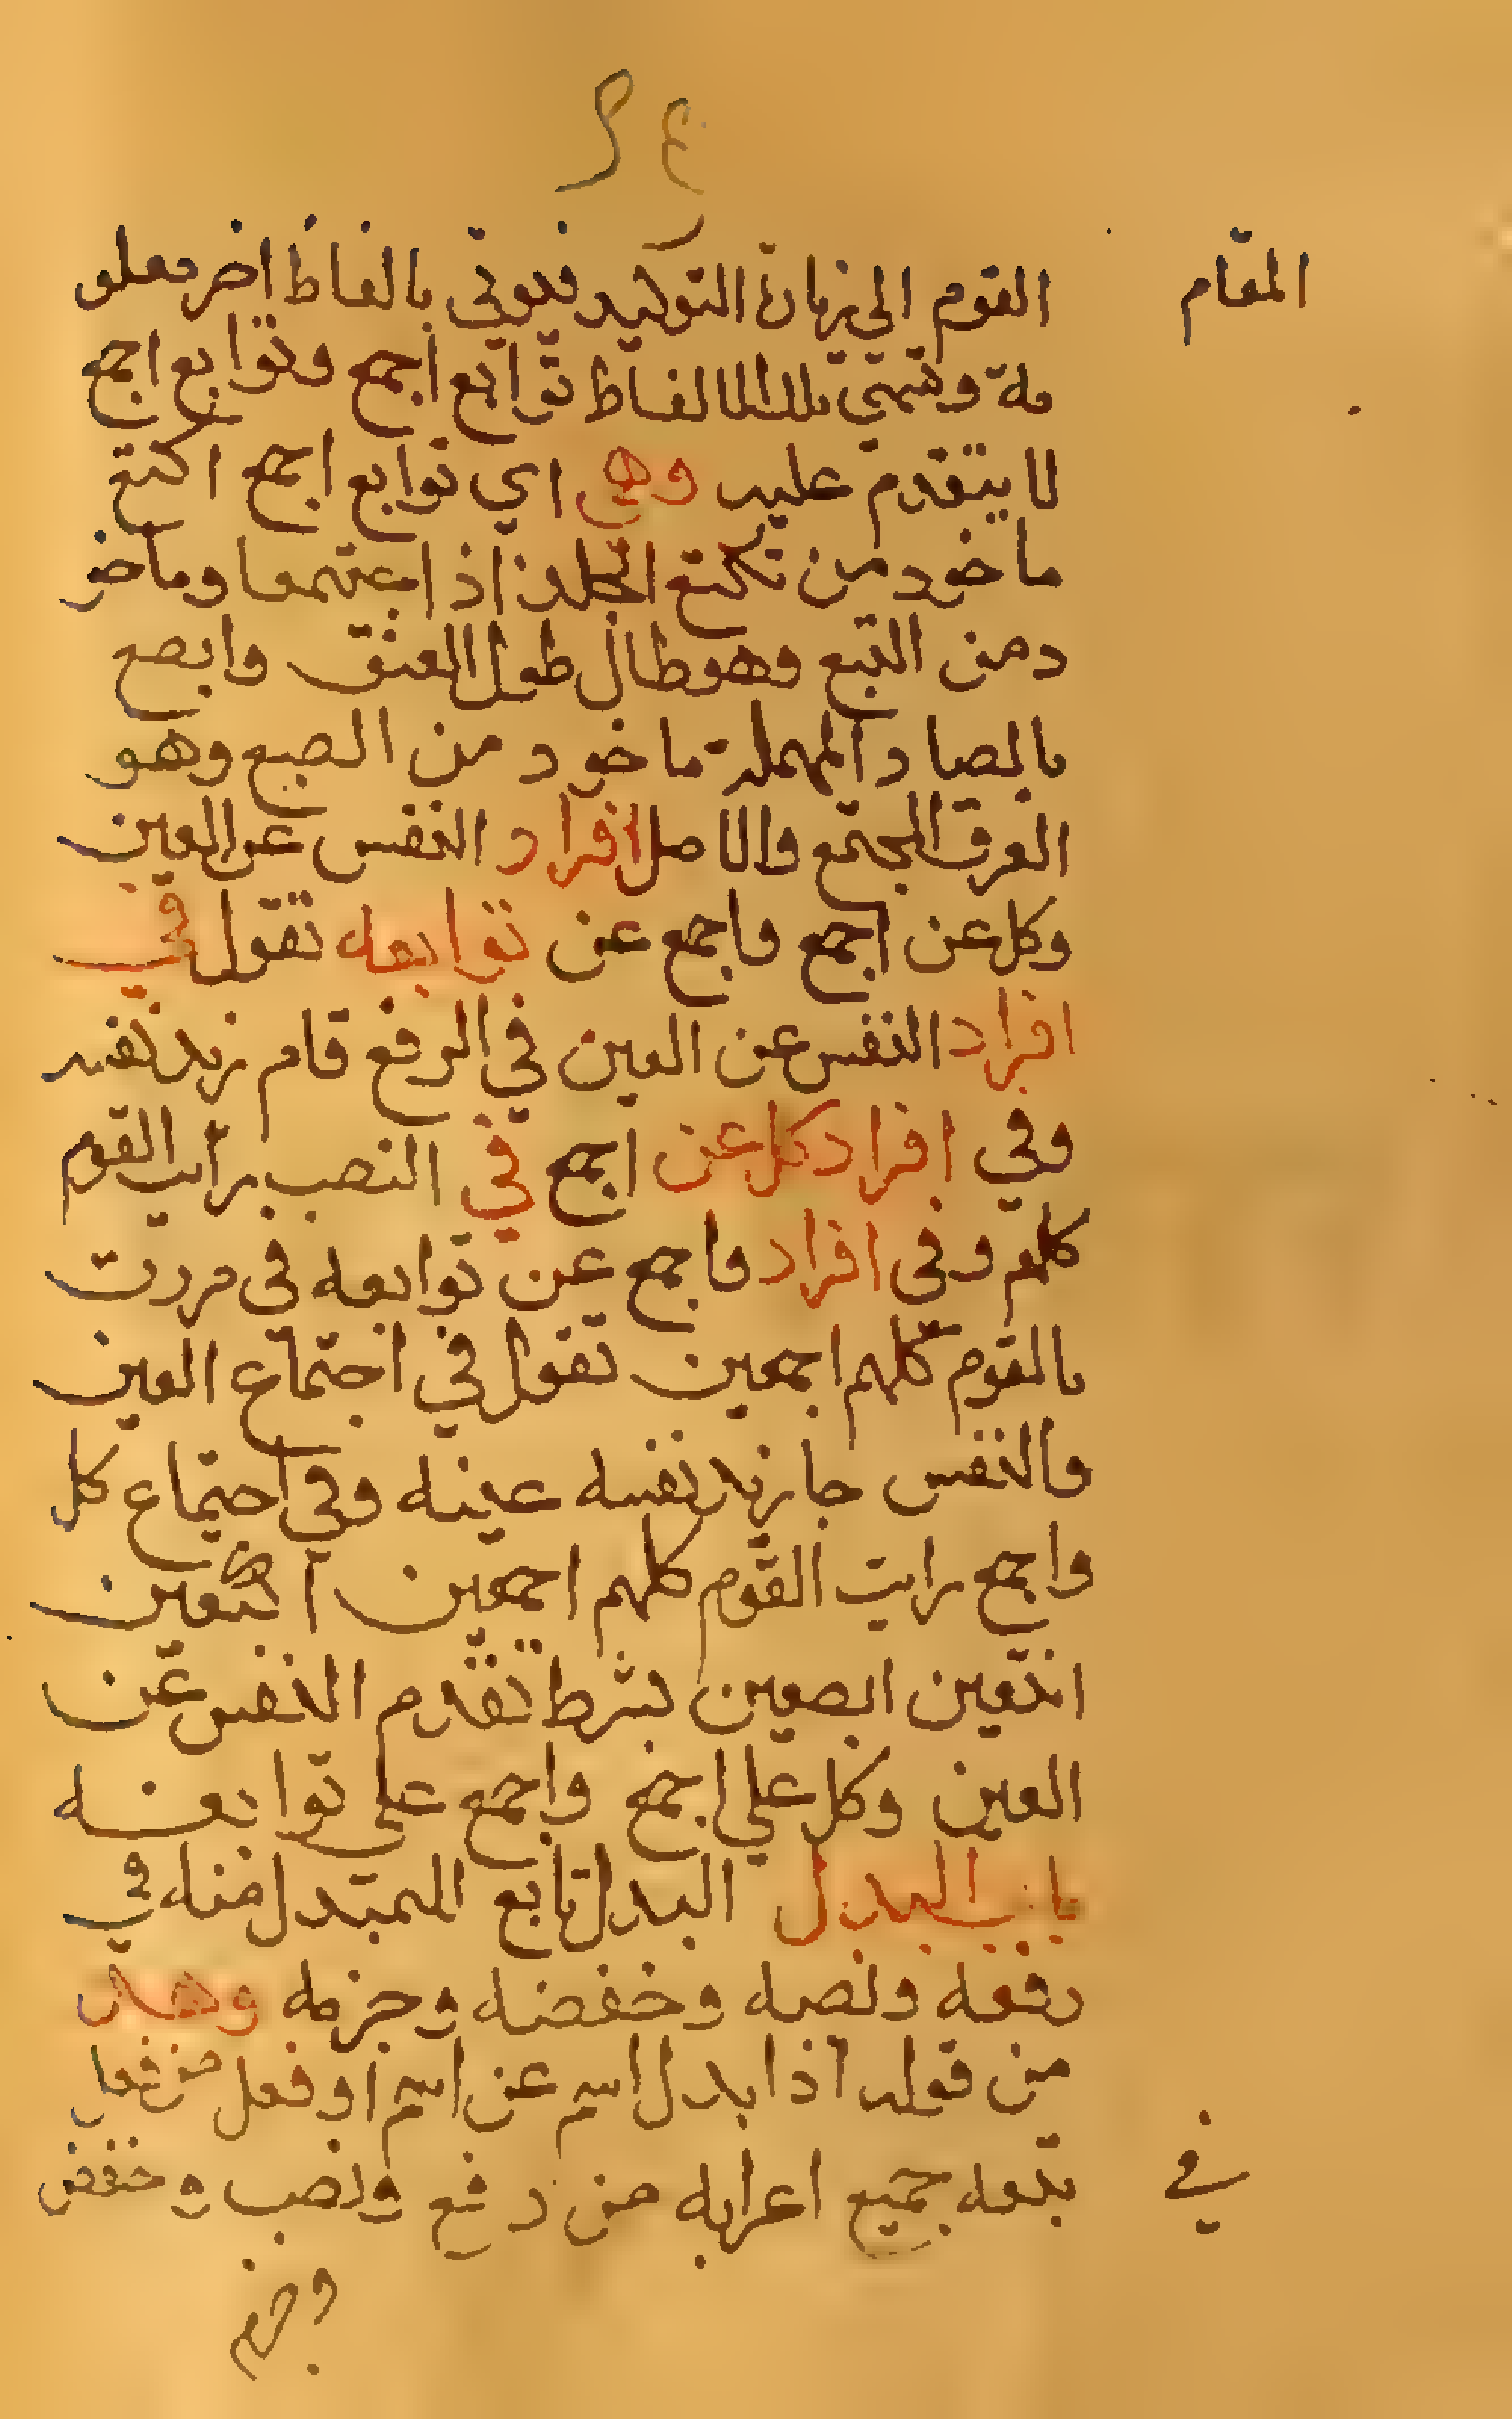 المقام
القوم الي زيادة التوكيد فيوتي بالفاظ اخر معلو
مة وتسمي تلك الالفاظ توابع اجمع وتوابع اجمع
لا يتقدم عليه وهي اي توابع اجمع اكتع
ماخود من تكتع الجلد اذا اجتمعا وماخو
د من التبع وهو طال طول العنق وابصع
بالصاد المهملة ماخود من الصبع وهو
العرق المجتمع والاصل افراد النفس عن العين
وكل عن اجمع واجمع عن توابعه تقول في
افراد النفس عن العين في الرفع قام زيد نفسه
وفي افراد كل عن اجمع في النصب رايت القوم
كلهم وفي افراد واجمع عن توابعه في مررت
بالقوم كلهم اجمعين تقول في اجتماع العين
والنفس جا زيد نفسه عينه وفي اجتماع كل
واجمع رايت القوم كلهم اجمعين اكتعين
ابتعين ابصعين بشرط تقدم النفس عن
العين وكل علي اجمع واجمع علي توابعه
باب البدل البدل تابع المبتدل منه في
رفعه ونصبه وخفضه وجزمه وهذا
من قوله اذا ابدل اسم عن اسم او فعل من فعل
تبعه جميع اعرابه من رفع ونصب وخفض
في
وجزم